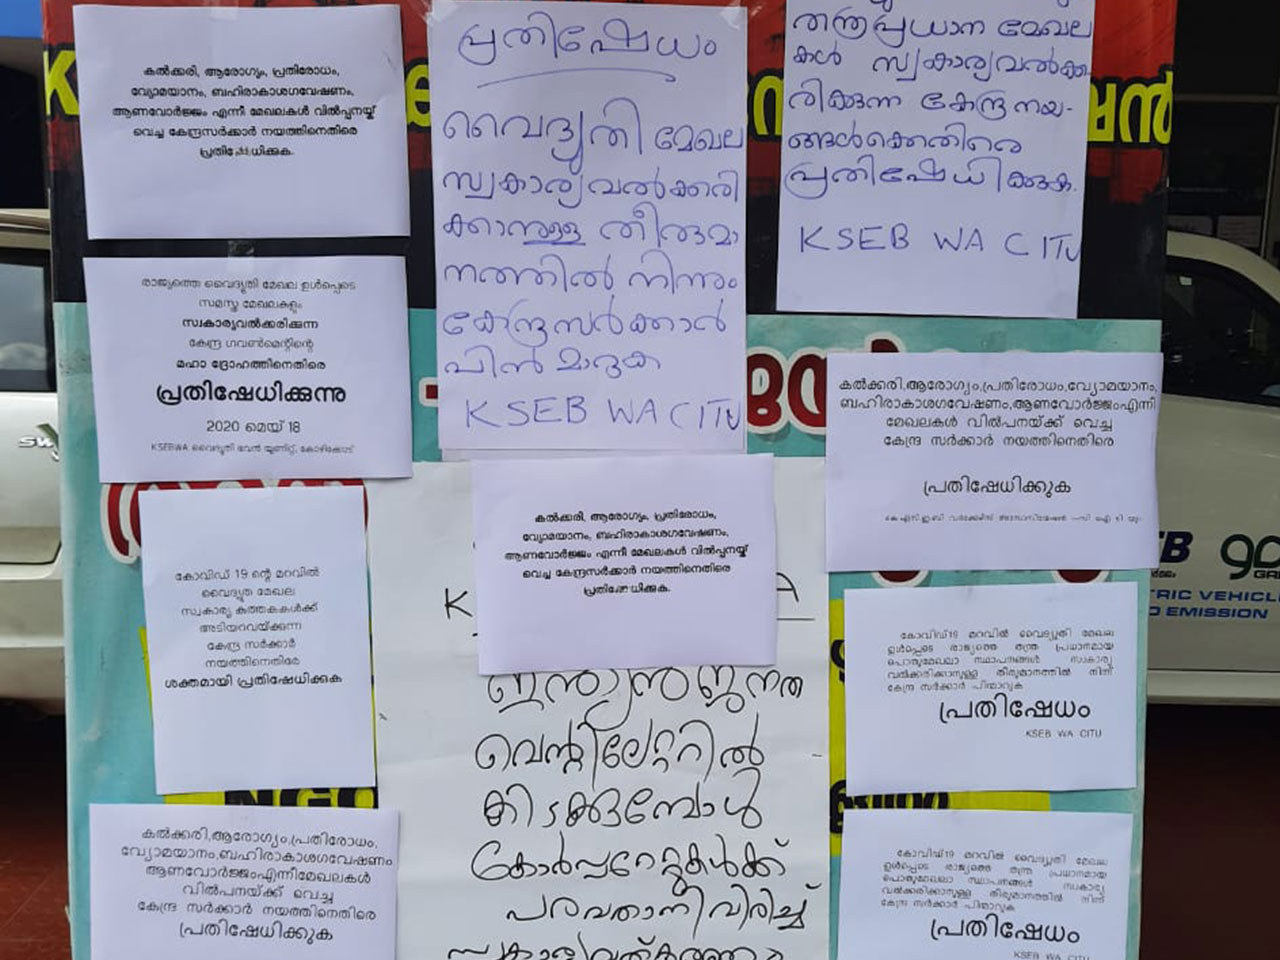 കൽക്കരി, ആരോഗ്യം, പ്രതിരോധം,
വ്യോമയാനം, ബഹിരാകാശഗവേഷണം,
ആണവോർജ്ജം എന്നീ മേഖലകൾ വിൽപ്പനയ്ക്ക്
വെച്ച കേന്ദ്രസർക്കാർ നയത്തിനെതിരെ
പ്രതിഷേധിക്കുക.
രാജ്യത്തെ വൈദ്യുതി മേഖല ഉൾപ്പെടെ
സമസ്ത മേഖലകളും
സ്വകാര്യവൽക്കരിക്കുന്ന
കേന്ദ്ര ഗവൺമെന്റിന്റെ
മഹാ ദ്രോഹത്തിനെതിരെ
പ്രതിഷേധിക്കുന്നു
2020 മെയ് 18
KSEBWA വൈദ്യുതി ഭവൻ യൂണിറ്റ്, കോഴിക്കോട്
കോവിഡ് 19 ന്റെ മറവിൽ
വൈദ്യുത മേഖല
സ്വകാര്യ കുത്തകകൾക്ക്
അടിയറവയ്ക്കുന്ന
കേന്ദ്ര സർക്കാർ
നയത്തിനെതിരേ
ശക്തമായി പ്രതിഷേധിക്കുക
NGO
കൽക്കരി,ആരോഗ്യം,പ്രതിരോധം,
വ്യോമയാനം,ബഹിരാകാശഗവേഷണം
ആണവോർജ്ജംഎന്നിമേഖലകൾ
വിൽപനയ്ക്ക് വെച്ച
കേന്ദ്ര സർക്കാർ നയത്തിനെതിരെ
പ്രതിഷേധിക്കുക
പ്രതിഷേധം
വൈദ്യുതി മേഖല
സ്വകാര്യവൽക്കരി
ക്കാനുള്ള തീരുമാ
നത്തിൽ നിന്നും
കേന്ദ്രസർക്കാർ
പിൻമാറുക
KSEB WA CITU
കൽക്കരി, ആരോഗ്യം, പ്രതിരോധം,
വ്യോമയാനം, ബഹിരാകാശഗവേഷണം,
ആണവോർജ്ജം എന്നീ മേഖലകൾ വിൽപ്പനയ്ക്ക്
വെച്ച കേന്ദ്രസർക്കാർ നയത്തിനെതിരെ
പ്രതിഷേധിക്കുക.
ഇന്ത്യൻ ജനത
വെന്റിലേറ്ററിൽ
കിടക്കുമ്പോൾ
കോർപ്പറേറ്റുകൾക്ക്
പരവതാനി വിരിച്ച്
തന്ത്രപ്രധാന മേഖല
കൾ സ്വകാര്യവൽക്ക
രിക്കുന്ന കേന്ദ്ര നയ-
ങ്ങൾക്കെതിരെ
പ്രതിഷേധിക്കുക.
KSEB WA CITU
കൽക്കരി,ആരോഗ്യം,പ്രതിരോധം,വ്യോമയാനം,
ബഹിരാകാശഗവേഷണം,ആണവോർജ്ജംഎന്നി
മേഖലകൾ വിൽപനയ്ക്ക് വെച്ച
കേന്ദ്ര സർക്കാർ നയത്തിനെതിരെ
പ്രതിഷേധിക്കുക
കെ.എസ്.ഇ.ബി വർക്കേഴ്സ് അസോസിയേഷൻ -സി ഐ ടി യു
കോവിഡ്19 മറവിൽ വൈദ്യുതി മേഖല
ഉൾപ്പെടെ രാജ്യത്തെ തന്ത്ര പ്രധാനമായ
പൊതുമേഖലാ സ്ഥാപനങ്ങൾ സ്വകാര്യ
വൽക്കരിക്കാനുള്ള തിരുമാനത്തിൽ നിന്ന്
കേന്ദ്ര സർക്കാർ പിന്മാറുക
പ്രതിഷേധം
KSEB WA CITU
കോവിഡ്19 മറവിൽ വൈദ്യുതി മേഖല
ഉൾപ്പെടെ രാജ്യത്തെ തന്ത്ര പ്രധാനമായ
പൊതുമേഖലാ സ്ഥാപനങ്ങൾ സ്വകാര്യ
വൽക്കരിക്കാനുള്ള തിരുമാനത്തിൽ നിന്ന്
കേന്ദ്ര സർക്കാർ പിന്മാറുക
പ്രതിഷേധം
KSEB WA CITU
TRIC VEHICLE
O EMISSION